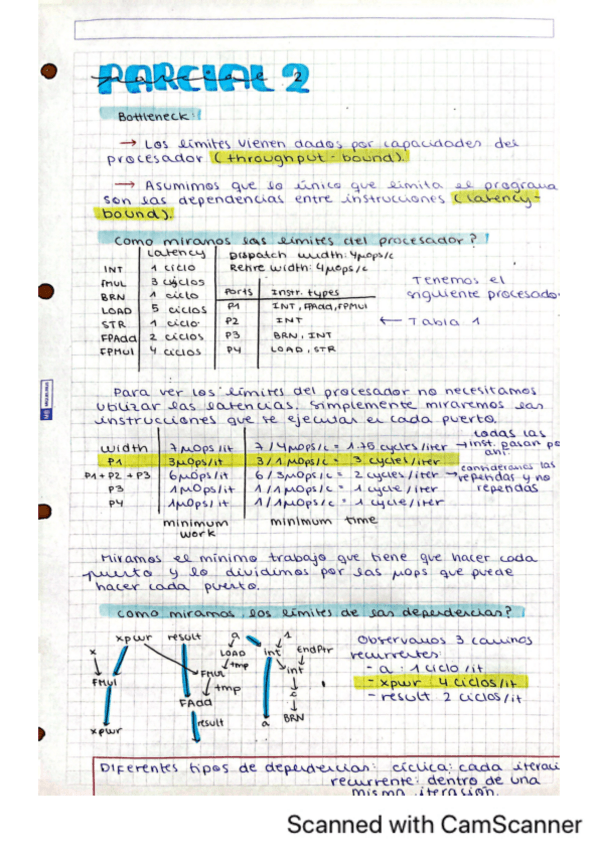 PARCIAL 2
parcial 2
Bottleneck!!
→ Los límites vienen dados por capacidades del
procesador (throughput-bound).
→ Asumimos que lo único que limita el programa
son las dependencias entre instrucciones (latency-
bound).
Como miramos los límites del procesador?
Latency
INT 1 ciclo
fMUL 3 cyclos
BRN 1 ciclo
LOAD 5 ciclos
STR 1 ciclo
FPAdd 2 ciclos
FPMul 4 ciclos
Dispatch width: 4μops/c
Retire width: 4μops/c
Ports Instr. types
P1 INT, FPAdd, FPMul
P2 INT
P3 BRN, INT
P4 LOAD, STR
Tenemos el
siguiente procesado
← Tabla 1
Para ver los límites del procesador no necesitamos
utilizar las latencias. Simplemente miraremos las
instrucciones que se ejecutan el cada puerto.
width 7μops/it 7/4μops/c = 1.75 cycles/iter → todas las inst. pasan po ahí.
P1 3μops/it 3/1μops/c = 3 cycles/iter
P1+P2+P3 6μops/it 6/3μops/c = 2 cycles/iter → consideramos las repetidas y no repetidas
P3 1μops/it 1/1μops/c = 1 cycle/iter
P4 1μops/it 1/1μops/c = 1 cycle/iter
minimum work
minimum time
Miramos el mínimo trabajo que tiene que hacer cada
puerto y lo dividimos por las μops que puede
hacer cada puerto.
como miramos los límites de las dependencias?
xpwr result a 1
x LOAD Int EndPtr
FMul FMul tmp Int
tmp c
FAdd
xpwr result a BRN
Observamos 3 caminos
recurrentes:
- a : 1 ciclo/it
- xpwr : 4 ciclos/it
- result 2 ciclos/it
Diferentes tipos de dependencias: cíclica: cada iteraci
recurrente: dentro de una
misma iteración.
Scanned with CamScanner